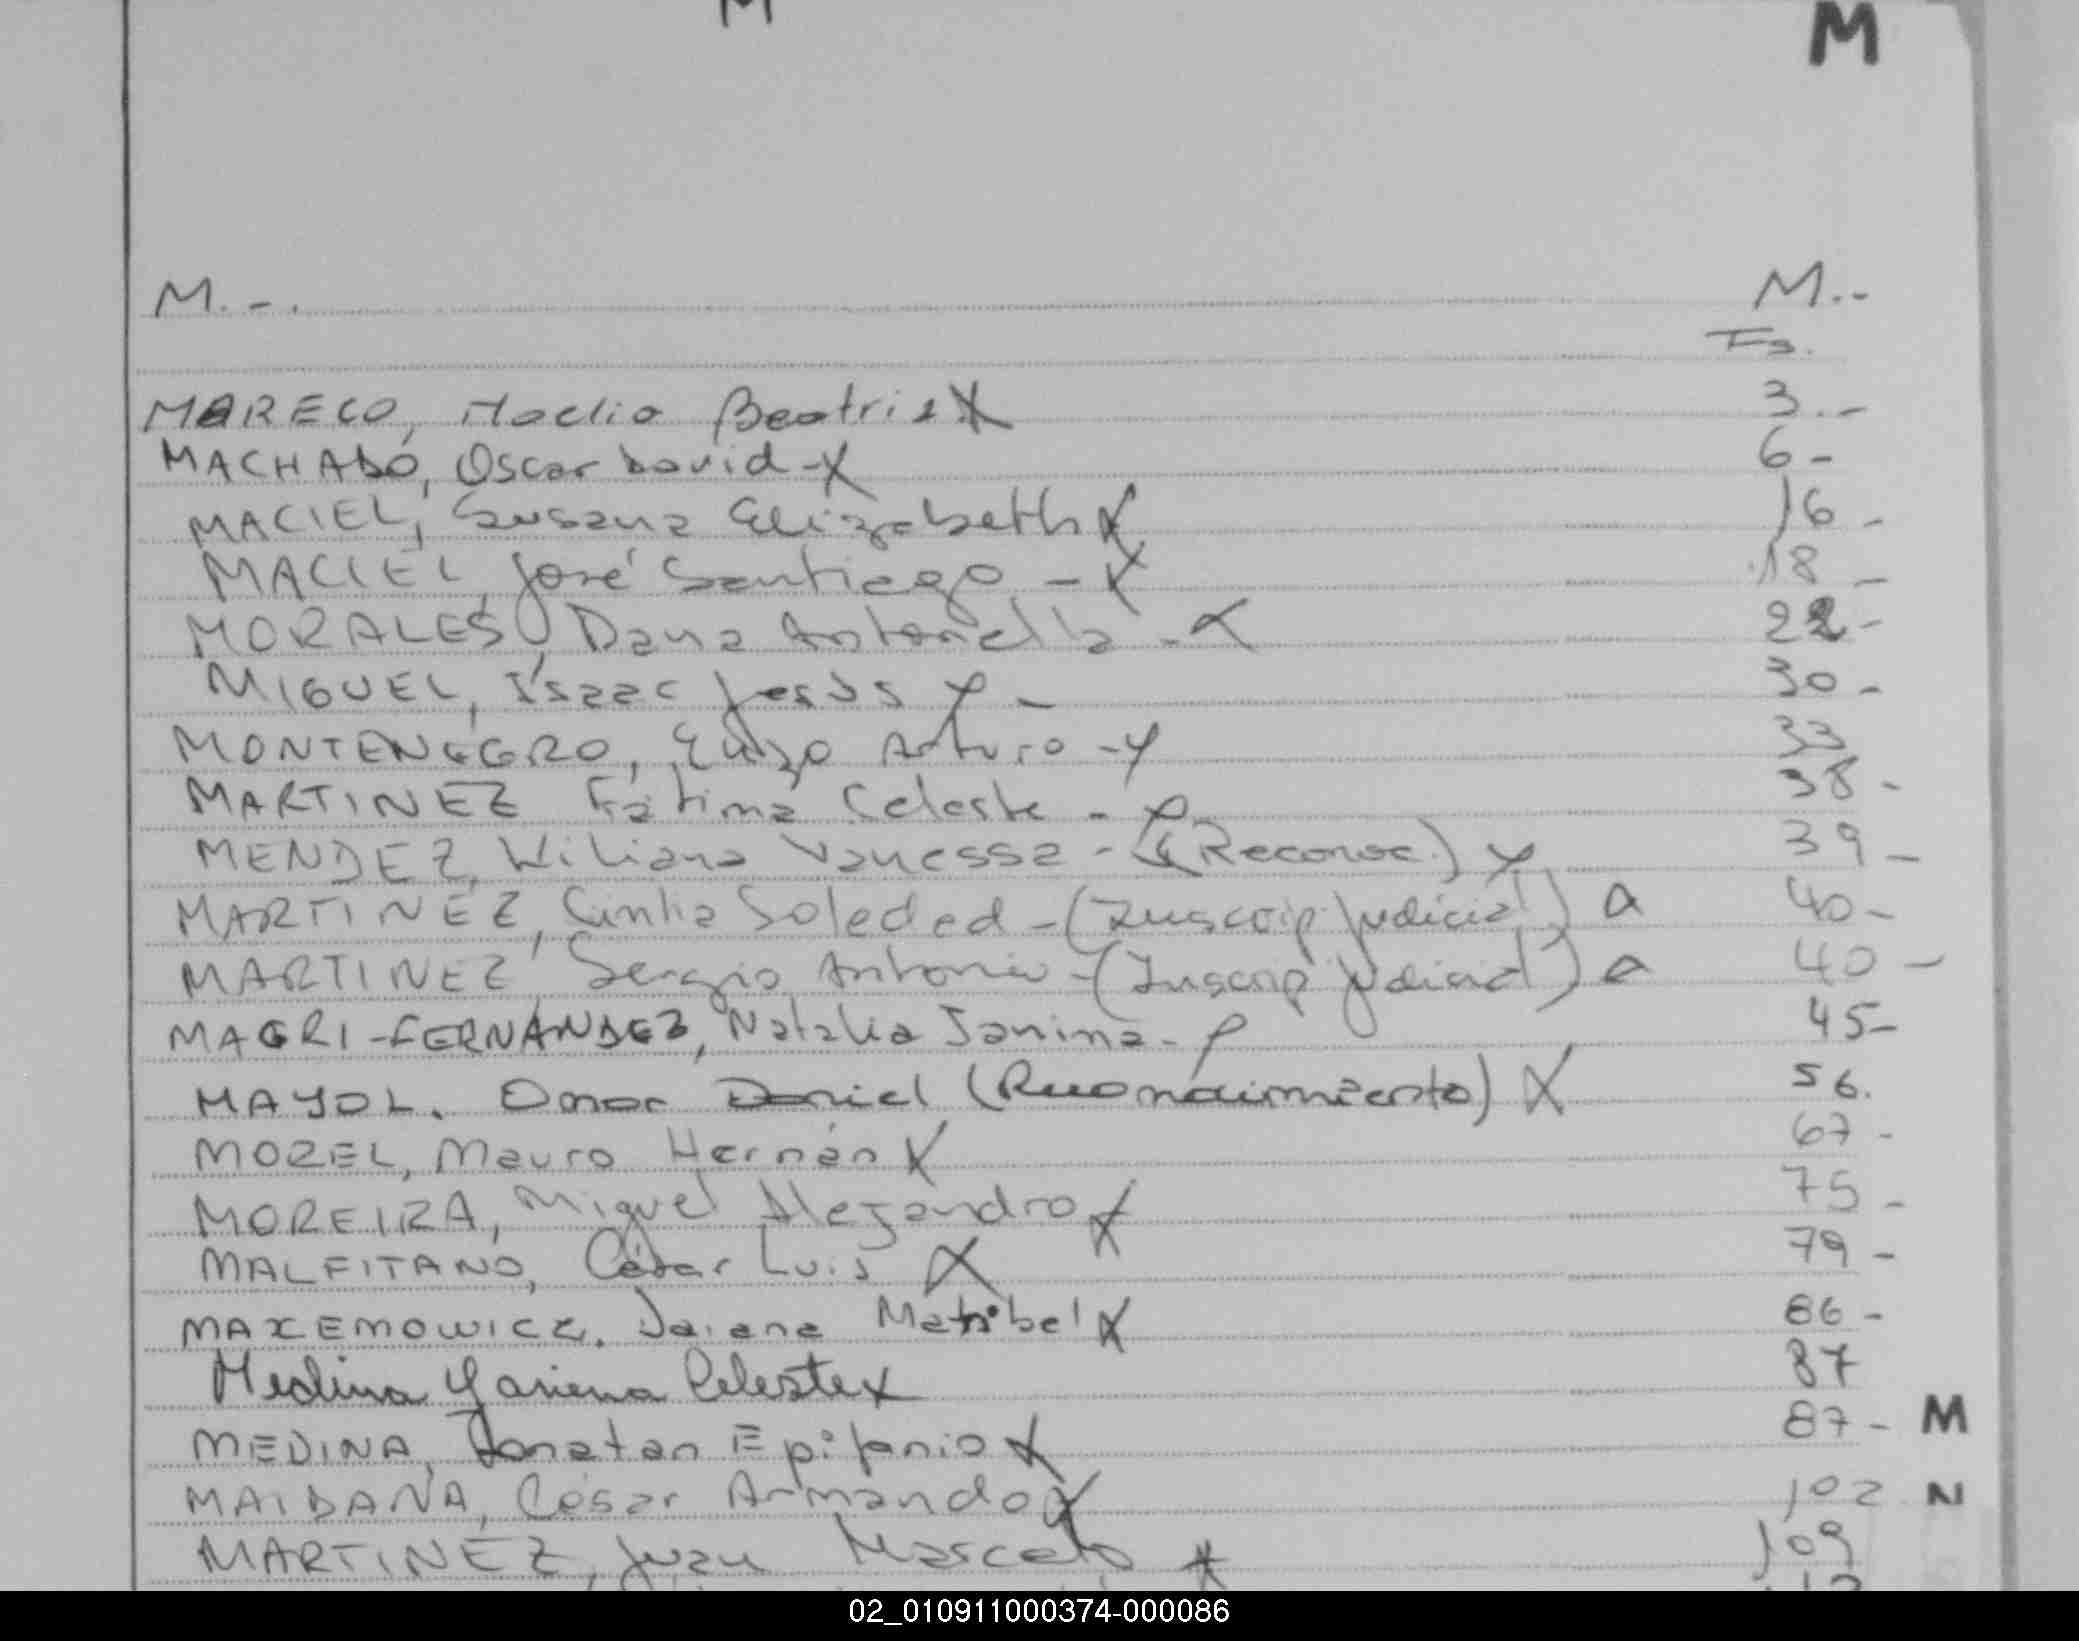 M
M
M.-. M.-
Fs.
MARECO, Noelia Beatriz X 3.-
MACHADO, Oscar David - X 6-
MACIEL, Susana Elizabeth X 16-
MACIEL, José Santiago - X 18-
MORALES, Dana Antonella - X 22-
MIGUEL, Isaac Jesús X - 30-
MONTENEGRO, Enzo Arturo - X 33
MARTINEZ Fátima Celeste - X 38-
MENDEZ, Wiliana Vanessa - (Reconoc.) X 39-
MARTINEZ, Cintia Soledad - (Inscrip Judicial) a 40-
MARTINEZ, Sergio Antonio - (Inscrip Judicial) a 40-
MAGRI-FERNANDEZ, Natalia Janina - 45-
MAYOL. Omar Daniel (Reconocimiento) X 56.
MOZEL, Mauro Hernán X 67-
MOREIRA, Miguel Alejandro X 75-
MALFITANO, César Luis X 79-
MAXEMOWICZ. Daiana Maribel X 86-
Medina Yanina Celeste X 87
MEDINA, Jonatan Epifanio X 87- M
MAIDANA, César Armando X 102 N
MARTINEZ, Juan Marcelo X 109
02_010911000374-000086